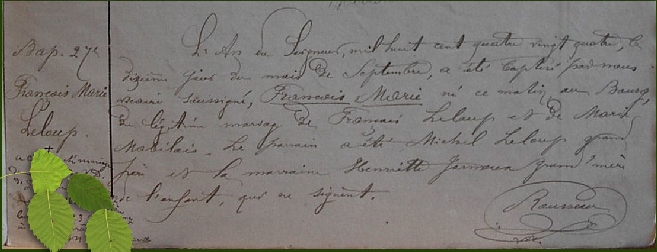 Bap. 27e
François Marie
Leloup.
L'An du Seigneur, mil huit cent quatre vingt quatre, le
dixième jour du mois de Septembre, a été baptisé par nous
vicaire soussigné, François Marie né ce matin, au Bourg,
du légitime mariage de François Leloup et de Marie
Mabilais. Le parrain a été Michel Leloup grand
père et la marraine Henriette grand'mère
de l'enfant, qui ne signent.
Rousseau